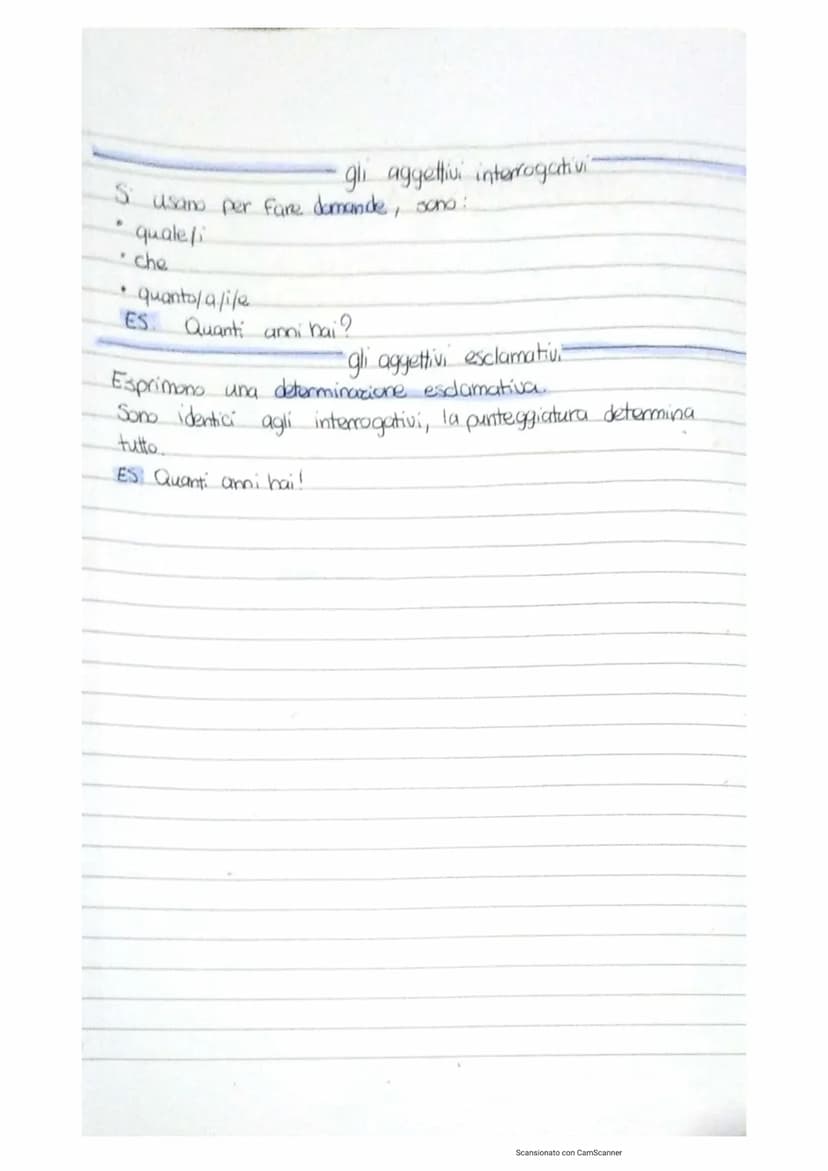 gli aggettivi interrogativi
Si usano per fare domande, sono:
• quale/i
• che
• quanto/a/i/e
ES. Quanti anni hai?
gli aggettivi esclamativi
Esprimono una determinazione esclamativa.
Sono identici agli interrogativi, la punteggiatura determina
tutto.
ES Quanti anni hai!
Scansionato con CamScanner